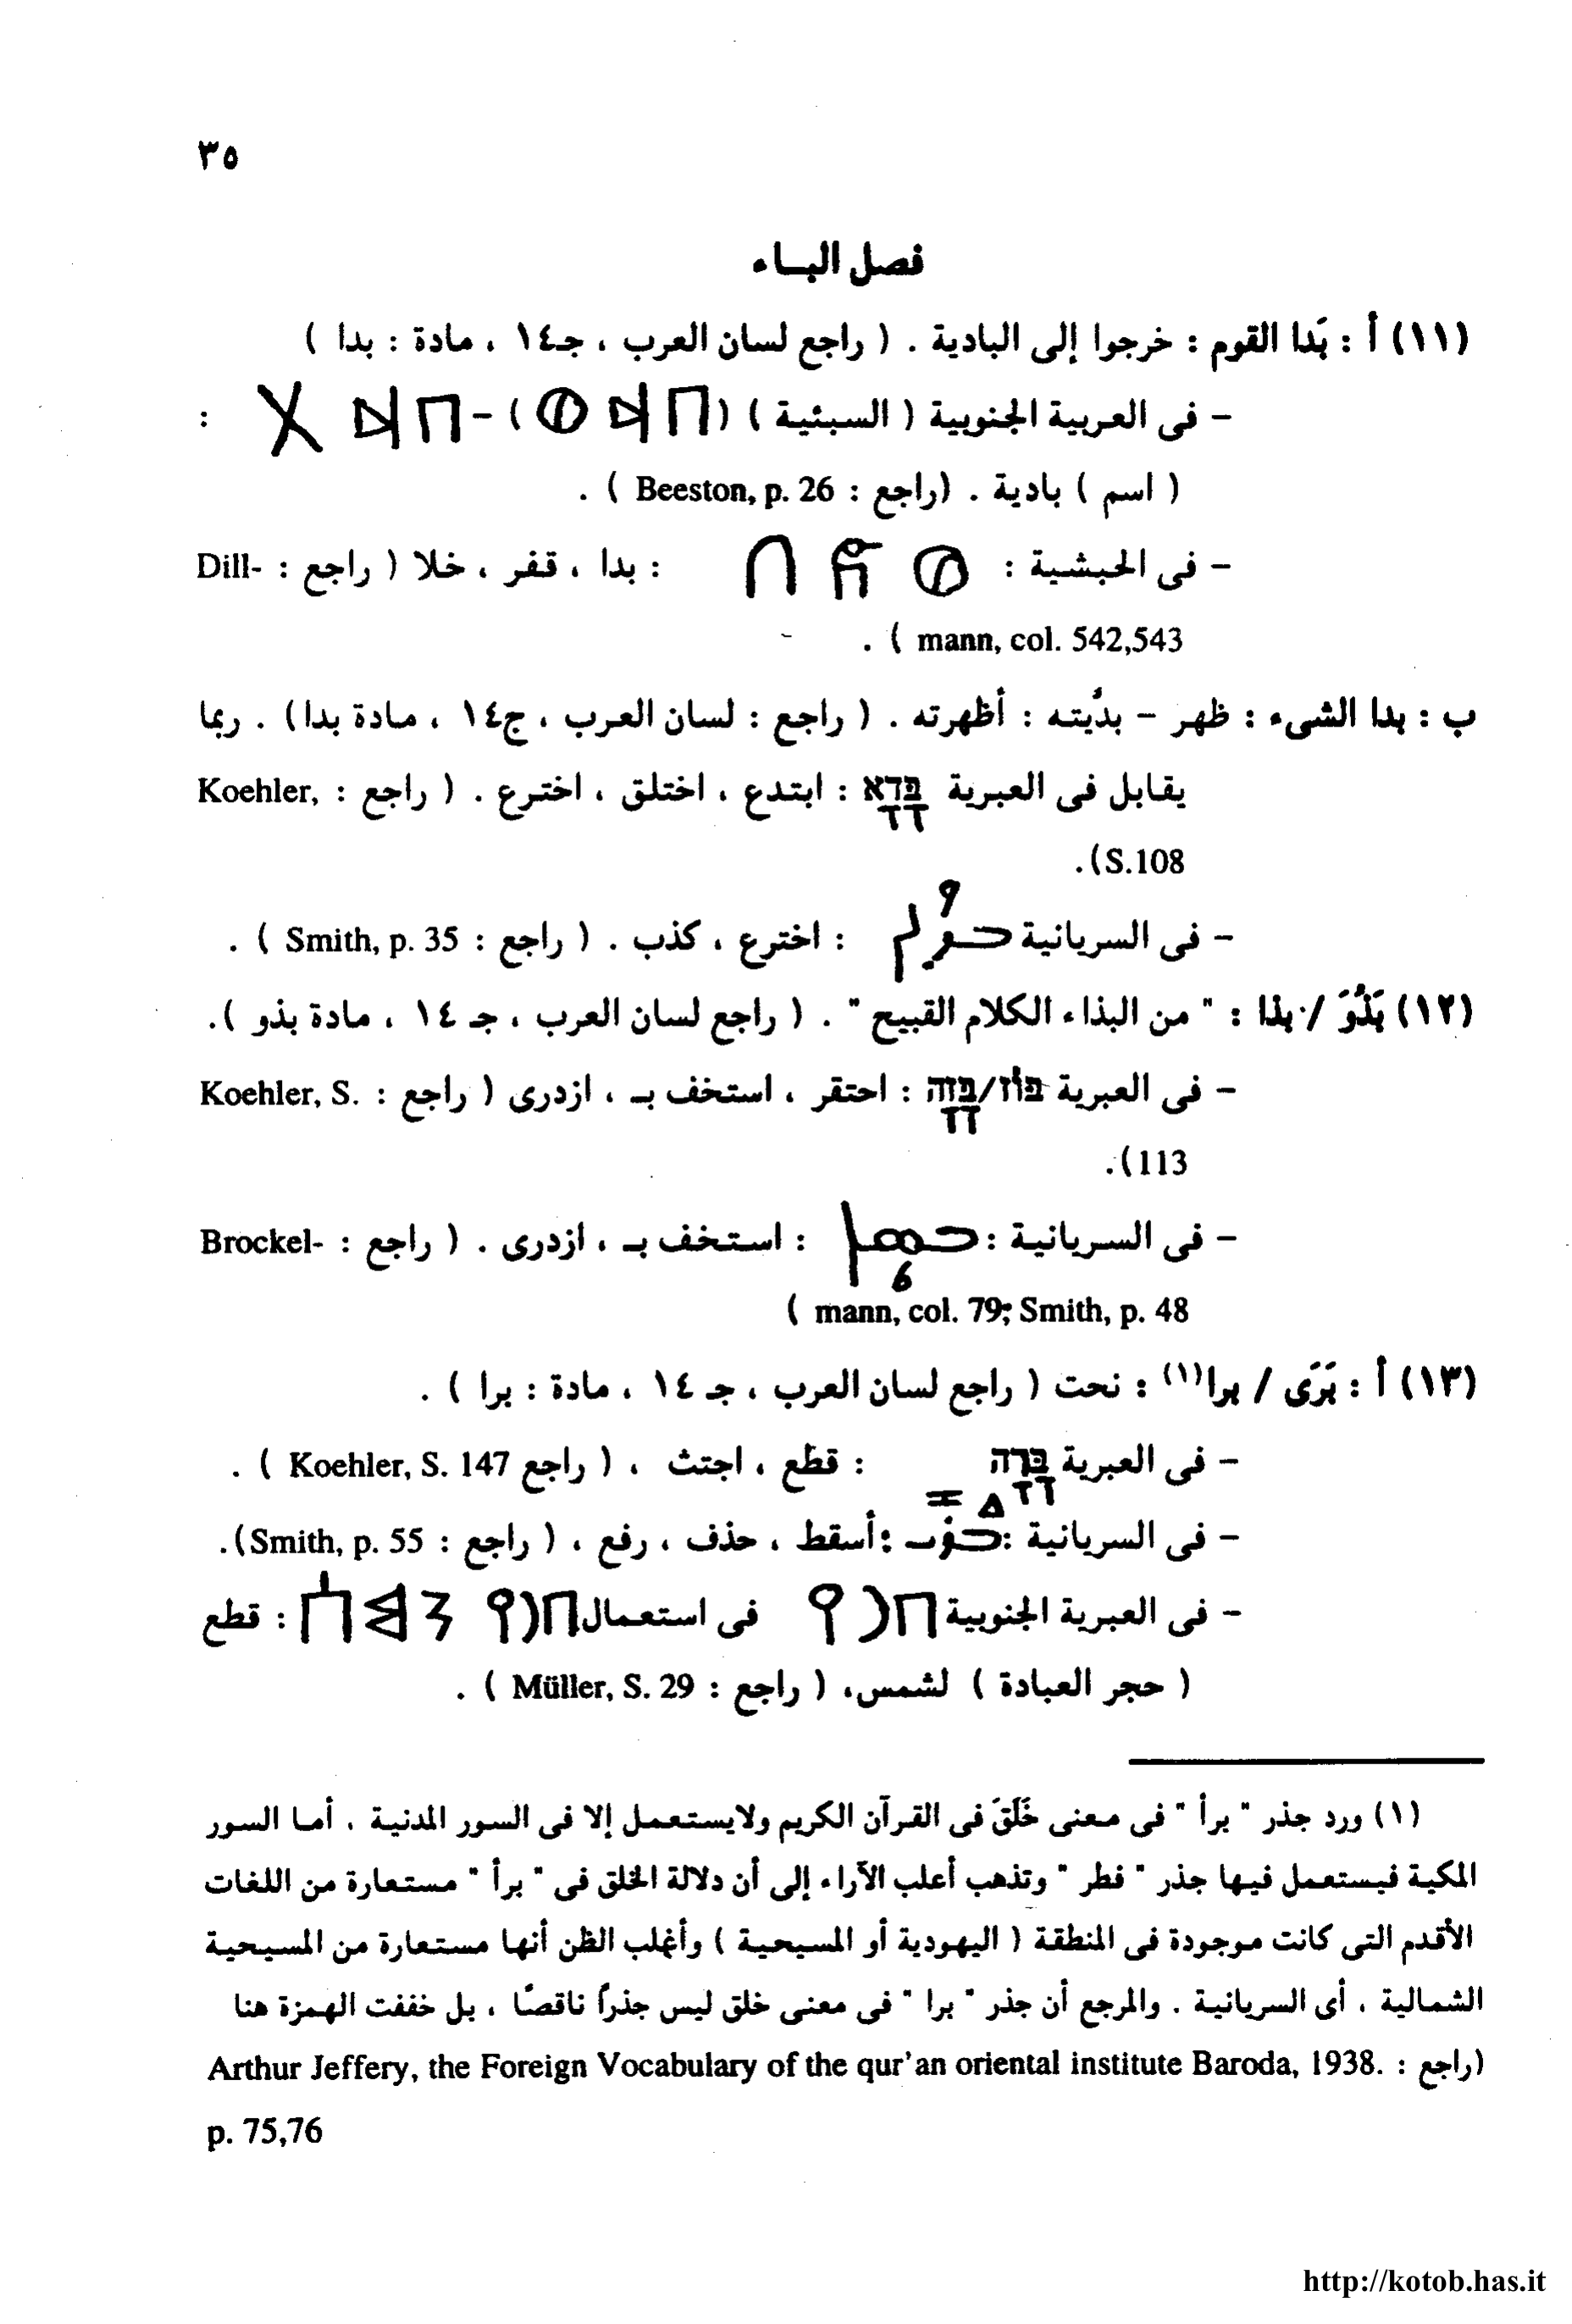 ٣٥
فصل البـاء
(١١) أ : بَدا القوم : خرجوا إلى البادية . ( راجع لسان العرب ، جـ١٤ ، مادة : بدا )
– فى العربية الجنوبية ( السبئية ) (𐩨𐩵𐩥) – 𐩨𐩵𐩩 :
( اسم ) بادية . (راجع : Beeston, p. 26 ) .
– فى الحبشية : : بدا ، قفر ، خلا ( راجع : Dill-
mann, col. 542,543 ) .
ب : بدا الشىء : ظهر – بدُيته : أظهرته . ( راجع : لسان العرب ، ج١٤ ، مادة بدا) . ربما
يقابل فى العبرية בָּדָא : ابتدع ، اختلق ، اخترع . ( راجع : Koehler,
S.108).
– فى السريانية : اخترع ، كذب . ( راجع : Smith, p. 35 ) .
(١٢) بَذُوَ / بذا : " من البذاء الكلام القبيح " . ( راجع لسان العرب ، جـ ١٤ ، مادة بذو ).
– فى العبرية בוז/בָּזָה : احتقر ، استخف بـ ، ازدرى ( راجع : Koehler, S.
113).
– فى السريانية : : استخف بـ ، ازدرى . ( راجع : Brockel-
mann, col. 79; Smith, p. 48 )
(١٣) أ : بَرَى / برا(١) : نحت ( راجع لسان العرب ، جـ ١٤ ، مادة : برا ) .
– فى العبرية בָּרָה : قطع ، اجتث ، ( راجع Koehler, S. 147 ) .
– فى السريانية : : أسقط ، حذف ، رفع ، ( راجع : Smith, p. 55).
– فى العبرية الجنوبية 𐩨𐩧𐩺 فى استعمال 𐩨𐩧𐩺 : قطع
( حجر العبادة ) لشمس، ( راجع : Müller, S. 29 ) .
(١) ورد جذر " برأ " فى معنى خَلَقَ فى القرآن الكريم ولايستعمل إلا فى السور المدنية ، أما السور
المكية فيستعمل فيها جذر " فطر " وتذهب أعلب الآراء إلى أن دلالة الخلق فى " برأ " مستعارة من اللغات
الأقدم التى كانت موجودة فى المنطقة ( اليهودية أو المسيحية ) وأغلب الظن أنها مستعارة من المسيحية
الشمالية ، أى السريانية . والمرجع أن جذر " برا " فى معنى خلق ليس جذرًا ناقصًا ، بل خففت الهمزة هنا
(راجع : Arthur Jeffery, the Foreign Vocabulary of the qur'an oriental institute Baroda, 1938.
p. 75,76
http://kotob.has.it